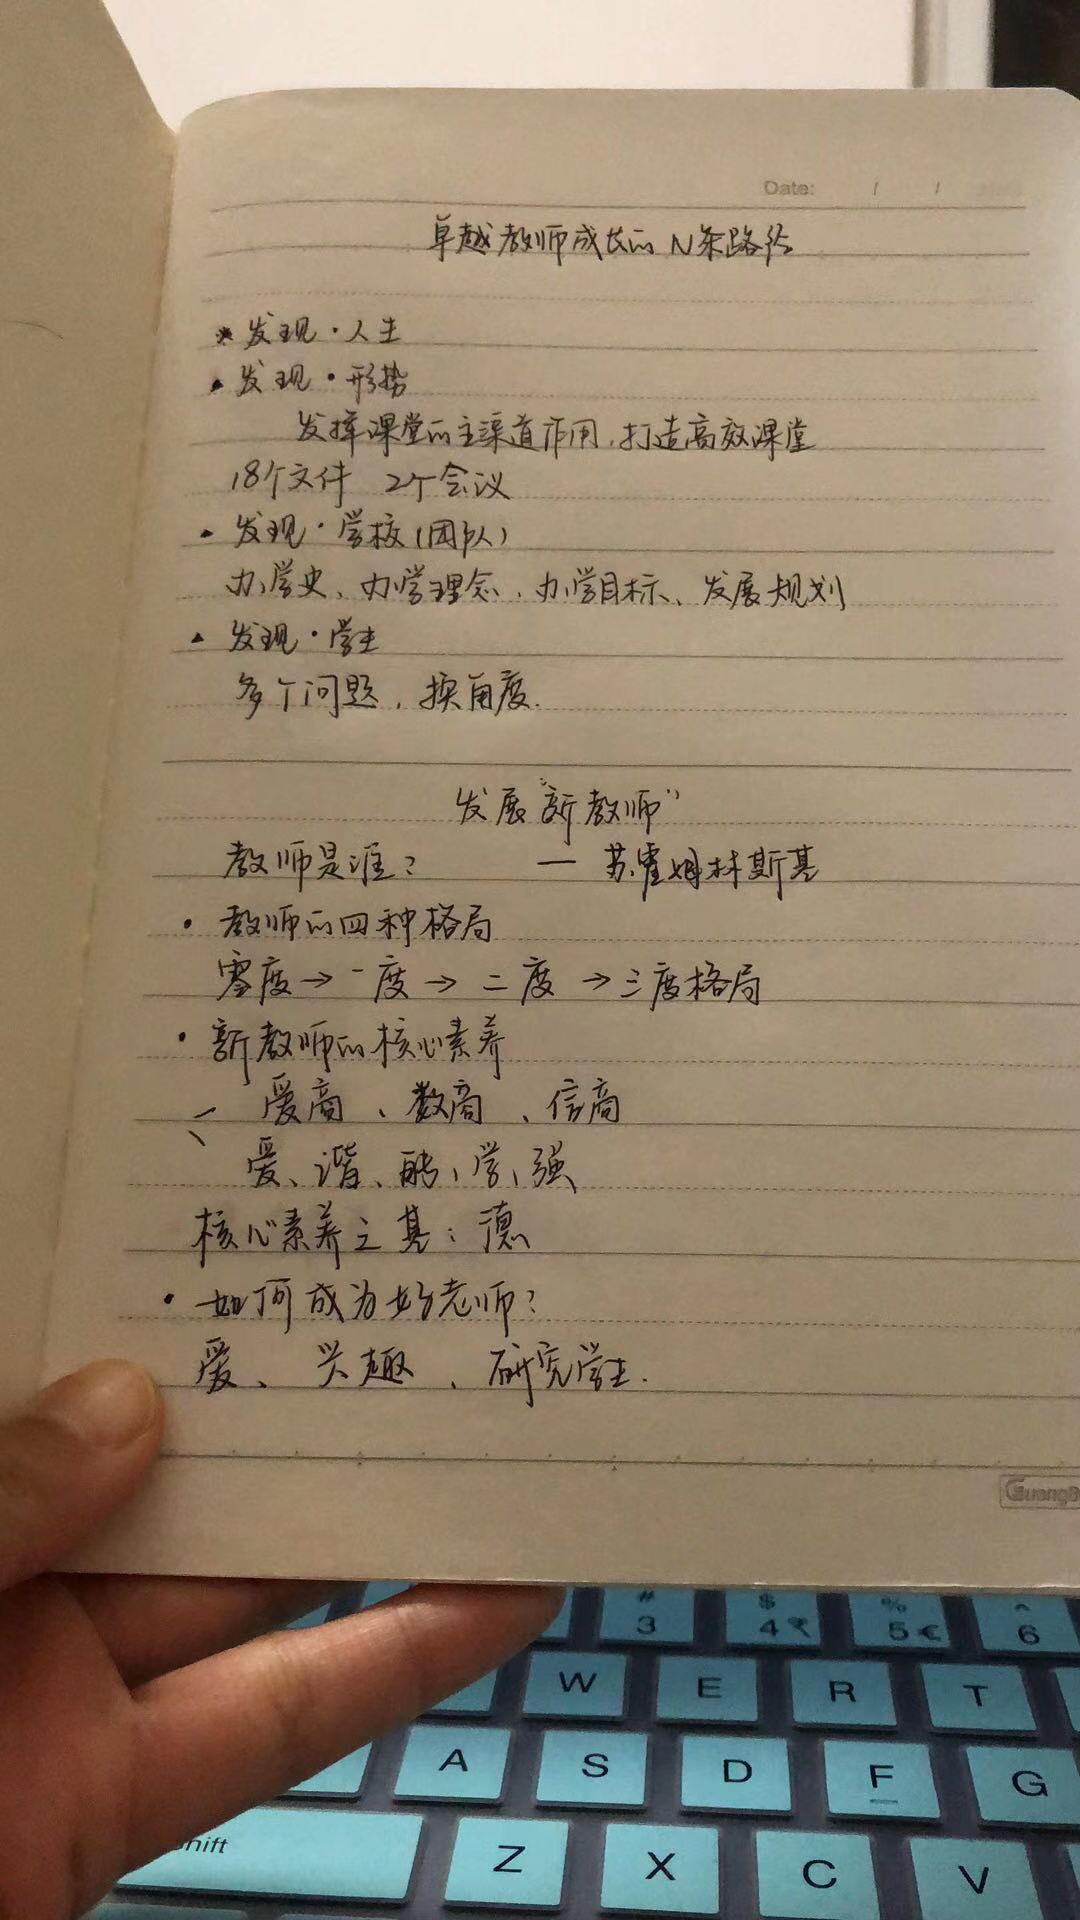 Date: / /
卓越教师成长的N条路径
* 发现·人生
▲ 发现·形势
发挥课堂的主渠道作用,打造高效课堂
18个文件 2个会议
▲ 发现·学校(团队)
办学史、办学理念、办学目标、发展规划
▲ 发现·学生
多个问题,换角度.
发展“新教师”
教师是谁? — 苏霍姆林斯基
· 教师的四种格局
零度→一度→二度→三度格局
· 新教师的核心素养
爱商、数商、信商
爱、谐、融、学、强
核心素养之基:德
· 如何成为好老师?
爱、兴趣、研究学生.
GuangB
# 3 $ 4 ₹ % 5 € ^ 6
W E R T
A S D F G
shift Z X C V